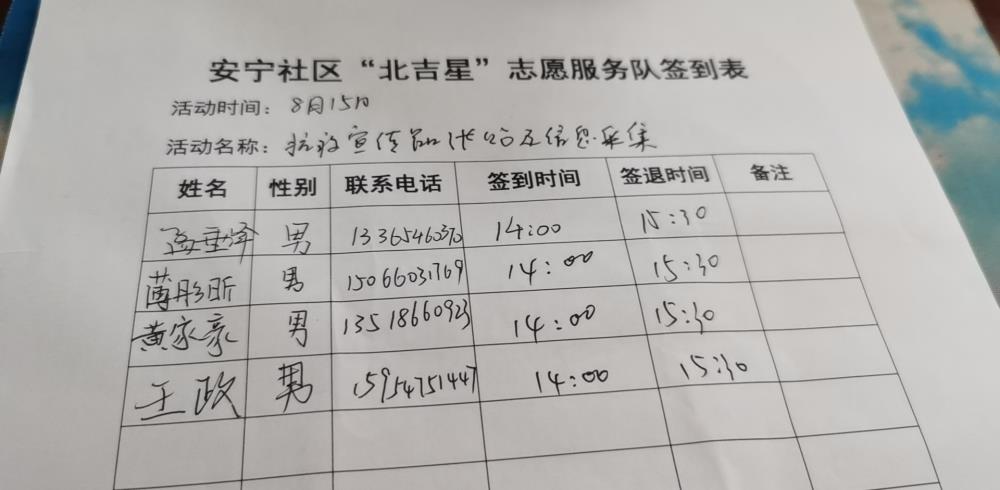 安宁社区“北吉星”志愿服务队签到表
活动时间：8月15日
活动名称：宣传及信息采集
姓名 性别 联系电话 签到时间 签退时间 备注
男 13365460370 14:00 15:30
薄彤昕 男 15066031769 14:00 15:30
黄家豪 男 13518660923 14:00 15:30
王政 男 15954751447 14:00 15:30